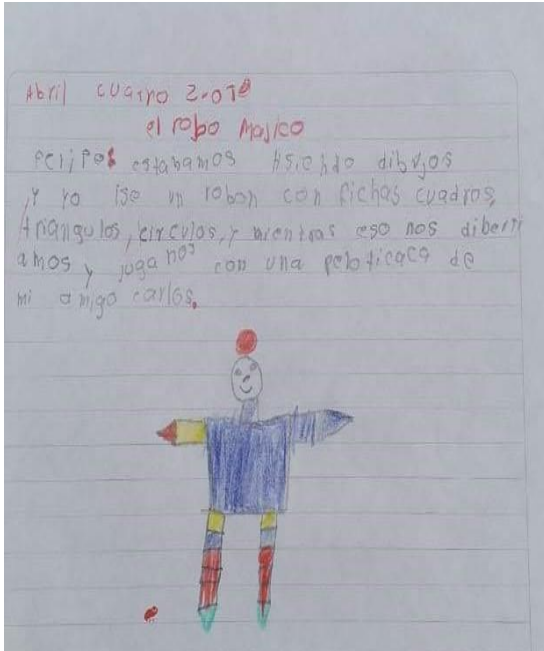 Abril cuatro 2.019
el robo Majico
Felipo estabamos isiendo dibujos
y yo ise un robon con fichas cuadros,
triangulos, circulos, y mientras eso nos diberti
amos y juganos con una peloticaca de
mi amigo carlos.